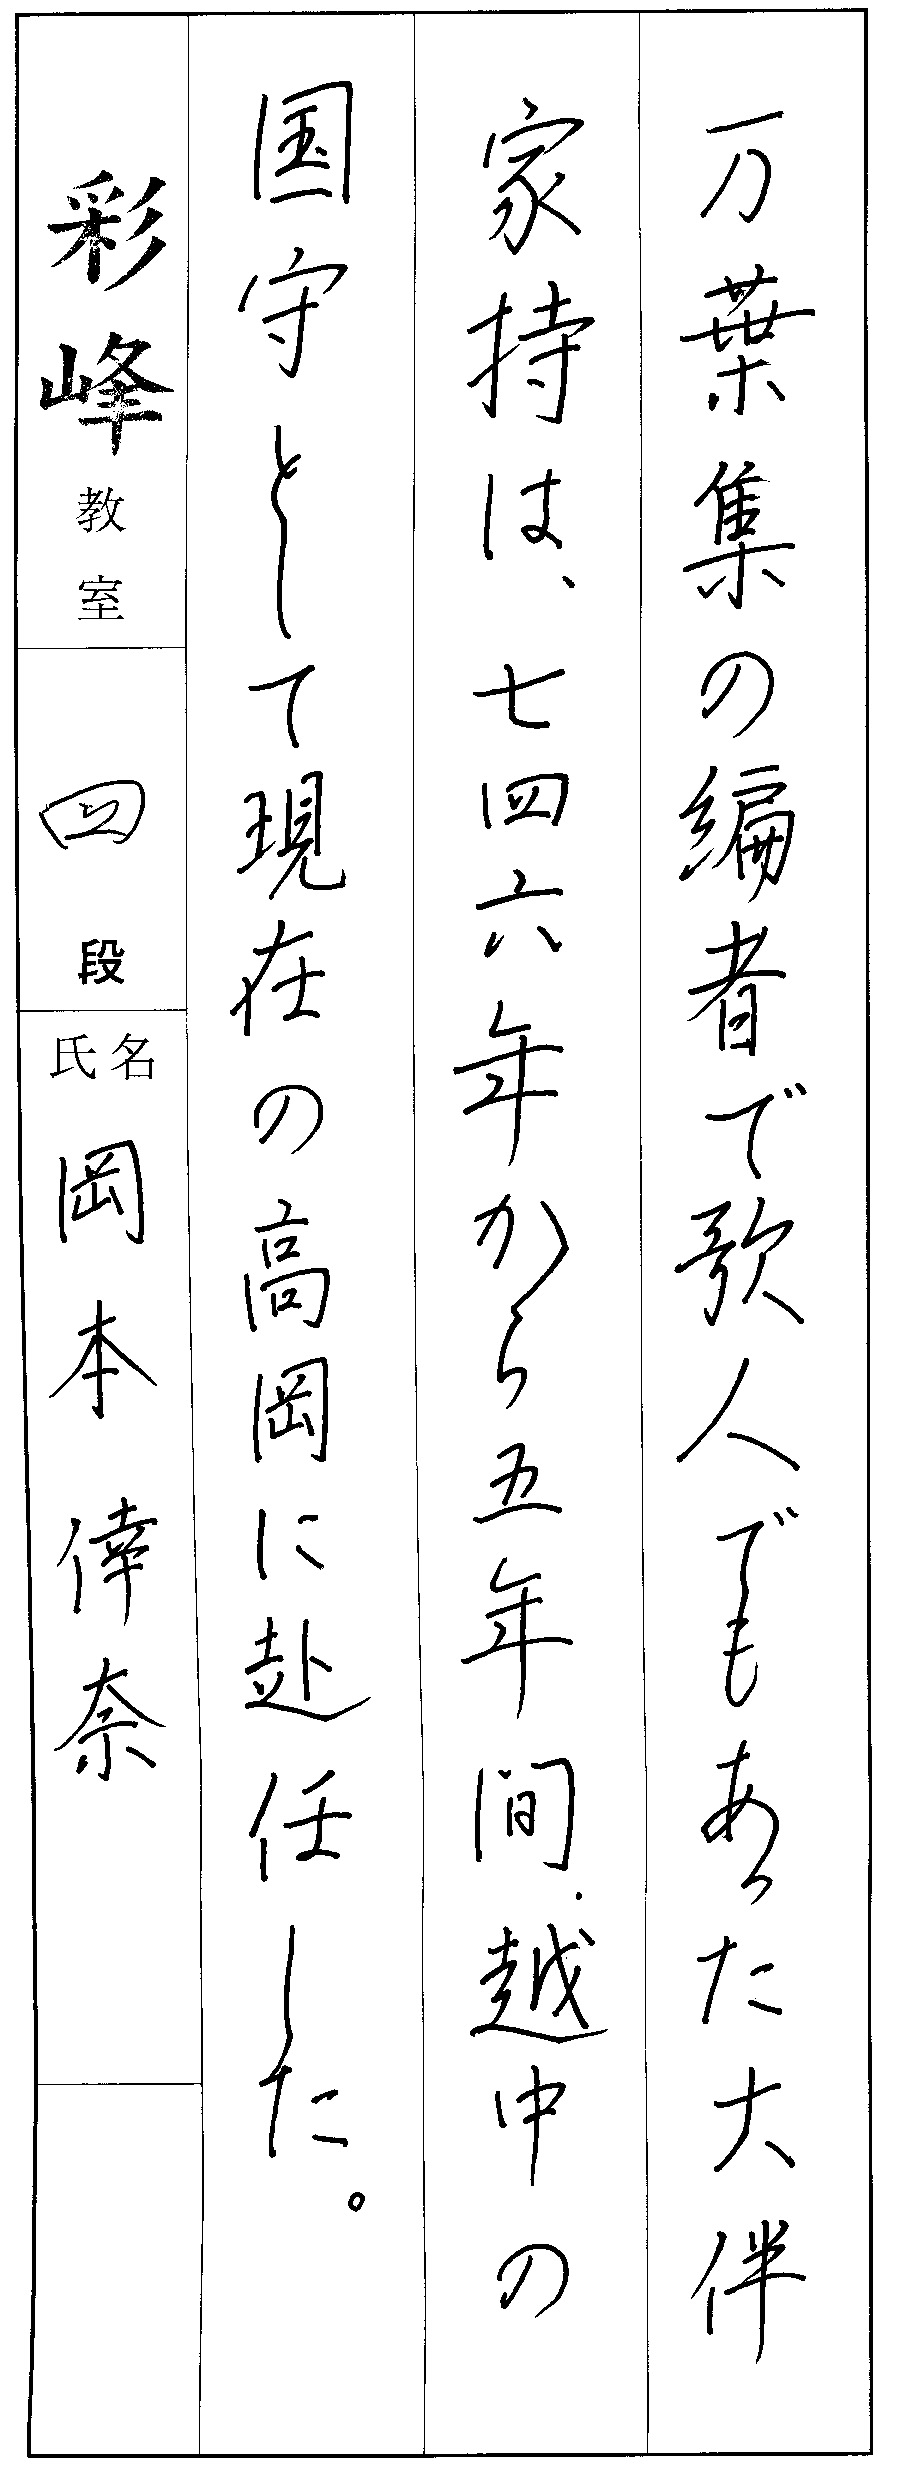 万葉集の編者で歌人でもあった大伴
家持は、七四六年から五年間、越中の
国守として現在の高岡に赴任した。
彩峰教室
四段
氏名 岡本倖奈